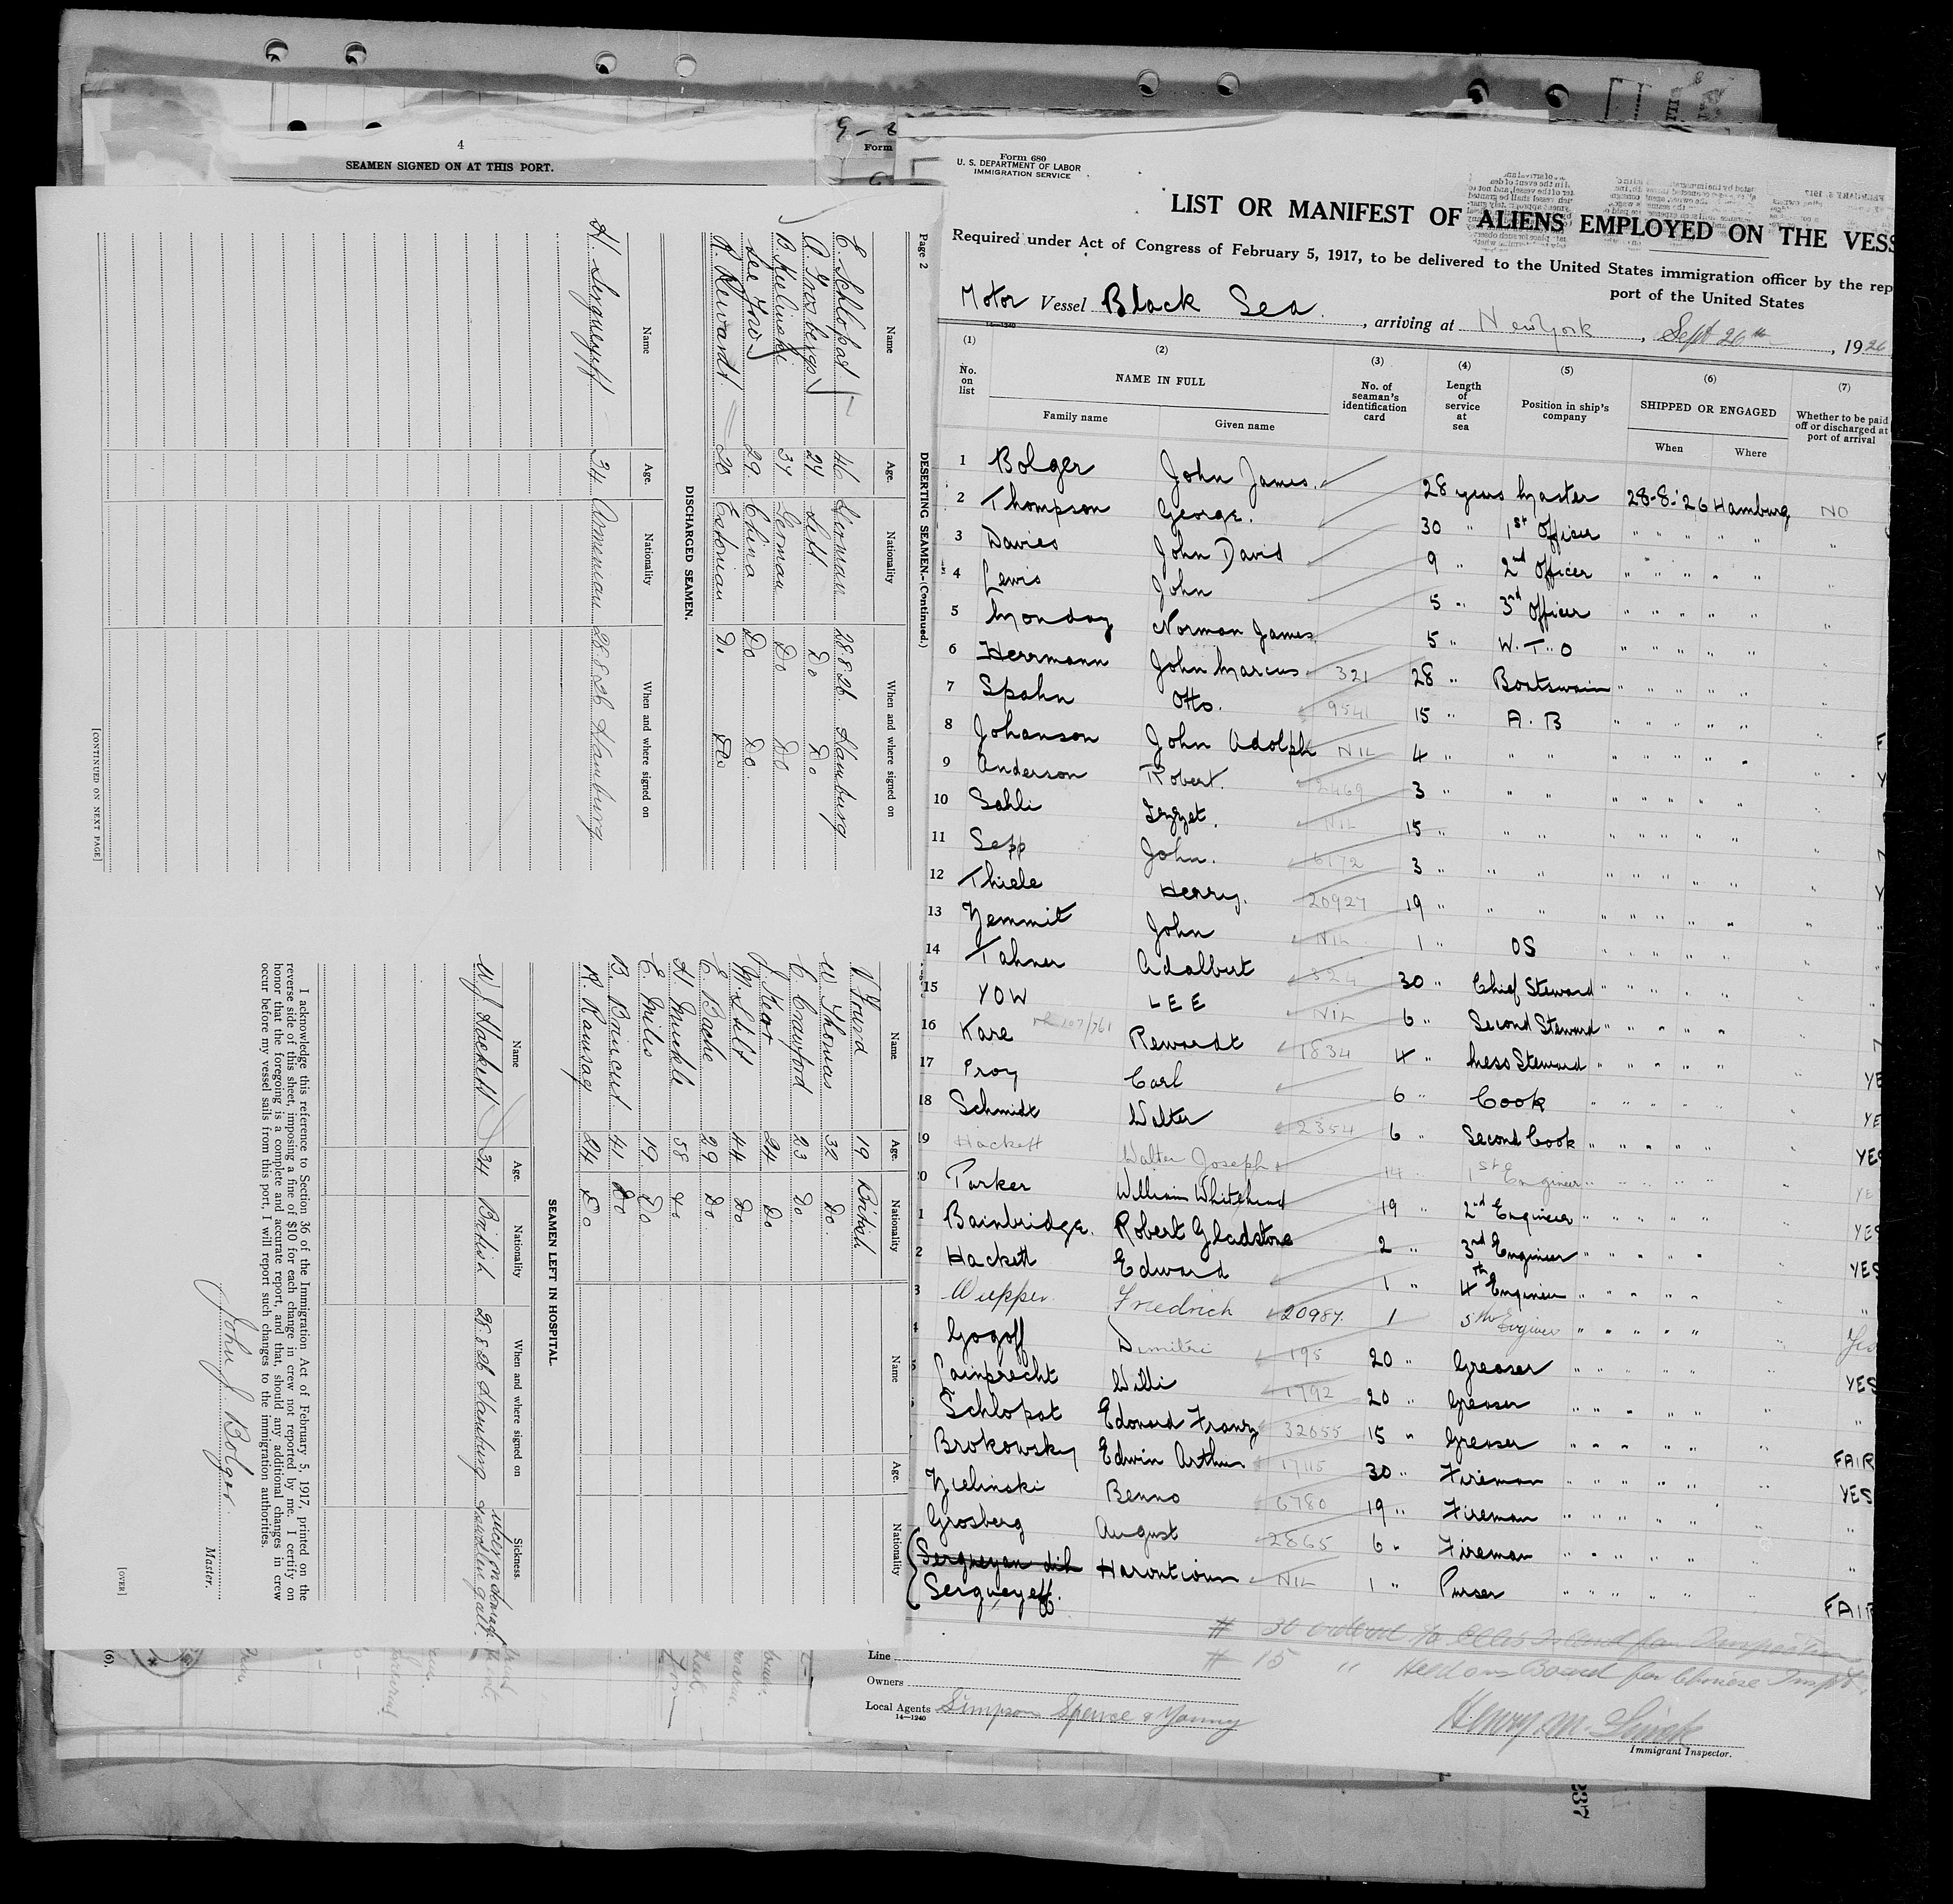 4
SEAMEN SIGNED ON AT THIS PORT.
Form 680
U. S. DEPARTMENT OF LABOR
IMMIGRATION SERVICE
LIST OR MANIFEST OF ALIENS EMPLOYED ON THE VESS
Required under Act of Congress of February 5, 1917, to be delivered to the United States immigration officer by the rep
port of the United States
Motor Vessel Black Sea. , arriving at New York , Sept 26th , 1926
14—1240
(1) (2) (3) (4) (5) (6) (7)
No. on list
NAME IN FULL
Family name Given name
No. of seaman's identification card
Length of service at sea
Position in ship's company
SHIPPED OR ENGAGED
When Where
Whether to be paid off or discharged at port of arrival
1 Bolger John James. 28 years Master 28-8-26 Hamburg NO
2 Thompson George. 30 " 1st Officer " " " " "
3 Davies John David 9 " 2nd Officer " " " " "
4 Lewis John 5 " 3rd Officer " " " " "
5 Monday Norman James 5 " W.T.O " " " " "
6 Herrmann John Marcus 321 28 " Boatswain " " " " "
7 Spahn Otto. 9541 15 " A.B " " " " "
8 Johanson John Adolph NIL 4 " " " " " " " "
9 Anderson Robert. 2469 3 " " " " " " " "
10 Sahli Izzet. NIL 15 " " " " " " " "
11 Sepp John. 6172 3 " " " " " " " "
12 Thiele Henry. 20927 19 " " " " " " " "
13 Yemmit John NIL 1 " OS " " " " "
14 Tahner Adalbert 324 30 " Chief Steward " " " " "
15 YOW LEE NIL 6 " Second Steward " " " " "
16 Kare Rewardt 1834 4 " Mess Steward " " " " " YE
17 Proy Carl 6 " Cook " " " " " YE
18 Schmidt Walter 2354 6 " Second Cook " " " " " YES
19 Hackett Walter Joseph 14 " 1st Engineer " " " " " YE
20 Parker William Whitehead 19 " 2nd Engineer " " " " " YES
1 Bainbridge. Robert Gladstone 2 " 3rd Engineer " " " " " YES
2 Hackett Edward 1 " 4th Engineer " " " " " "
3 Wupper Friedrich 20987. 1 5th Engineer " " " " " Yes
4 Gogoff Dimitri 195 20 " Greaser " " " " " YES
Lainprecht Willi 1792 20 " Greaser " " " " " "
Schlopat Edouard Franz 32055 15 " Greaser " " " " " FAIR
Brokowsky Edwin Arthur 17115 30 " Fireman " " " " " YES
Zielinski Benno 6780 19 " Fireman " " " " " "
Grosberg August 2865 6 " Fireman " " " " " "
Haroutioun NIL 1 " Purser " " " " FAIR
Sergueyeff.
# 30 ordered to Ellis Island for Inspection
# 15 " Held on Board for Chinese Inspt.
Line
Owners
Local Agents Simpson Spence & Young
14—1240
Henry M.
Immigrant Inspector.
Page 2
DESERTING SEAMEN.—(Continued.)
Name Age. Nationality When and where signed on
E. Schlopat 46 28.8.26 Hamburg
A. Grosbergs 24 Lett. Do Do
B. Zielinski 37 German Do Do
Lee Yow 29 China Do Do
K. Rewardt 28 Estonian Do Do
DISCHARGED SEAMEN.
Name Age. Nationality When and where signed on
H. Sergueyeff 34 Armenian 28.8.26 Hamburg
[CONTINUED ON NEXT PAGE]
Name Age. Nationality Name Age. Nationality
V. Hound 19 British
W Thomas 32 Do.
C. Crawford 23 Do.
J. Stear 24 Do
M. Shilt 44 Do
E Bache 29 Do
H Mickle 58 Do
E Milis 19 Do
B. Baincut 41 Do
R. Ramsay 24 Do
SEAMEN LEFT IN HOSPITAL.
Name Age. Nationality When and where signed on Sickness.
W J Hackett 34 British 28.8.26 Hamburg
I acknowledge this reference to Section 36 of the Immigration Act of February 5, 1917, printed on the
reverse side of this sheet, imposing a fine of $10 for each change in crew not reported by me. I certify on
honor that the foregoing is a complete and accurate report, and that, should any additional changes in crew
occur before my vessel sails from this port, I will report such changes to the immigration authorities.
John J Bolger
Master.
[OVER]
237